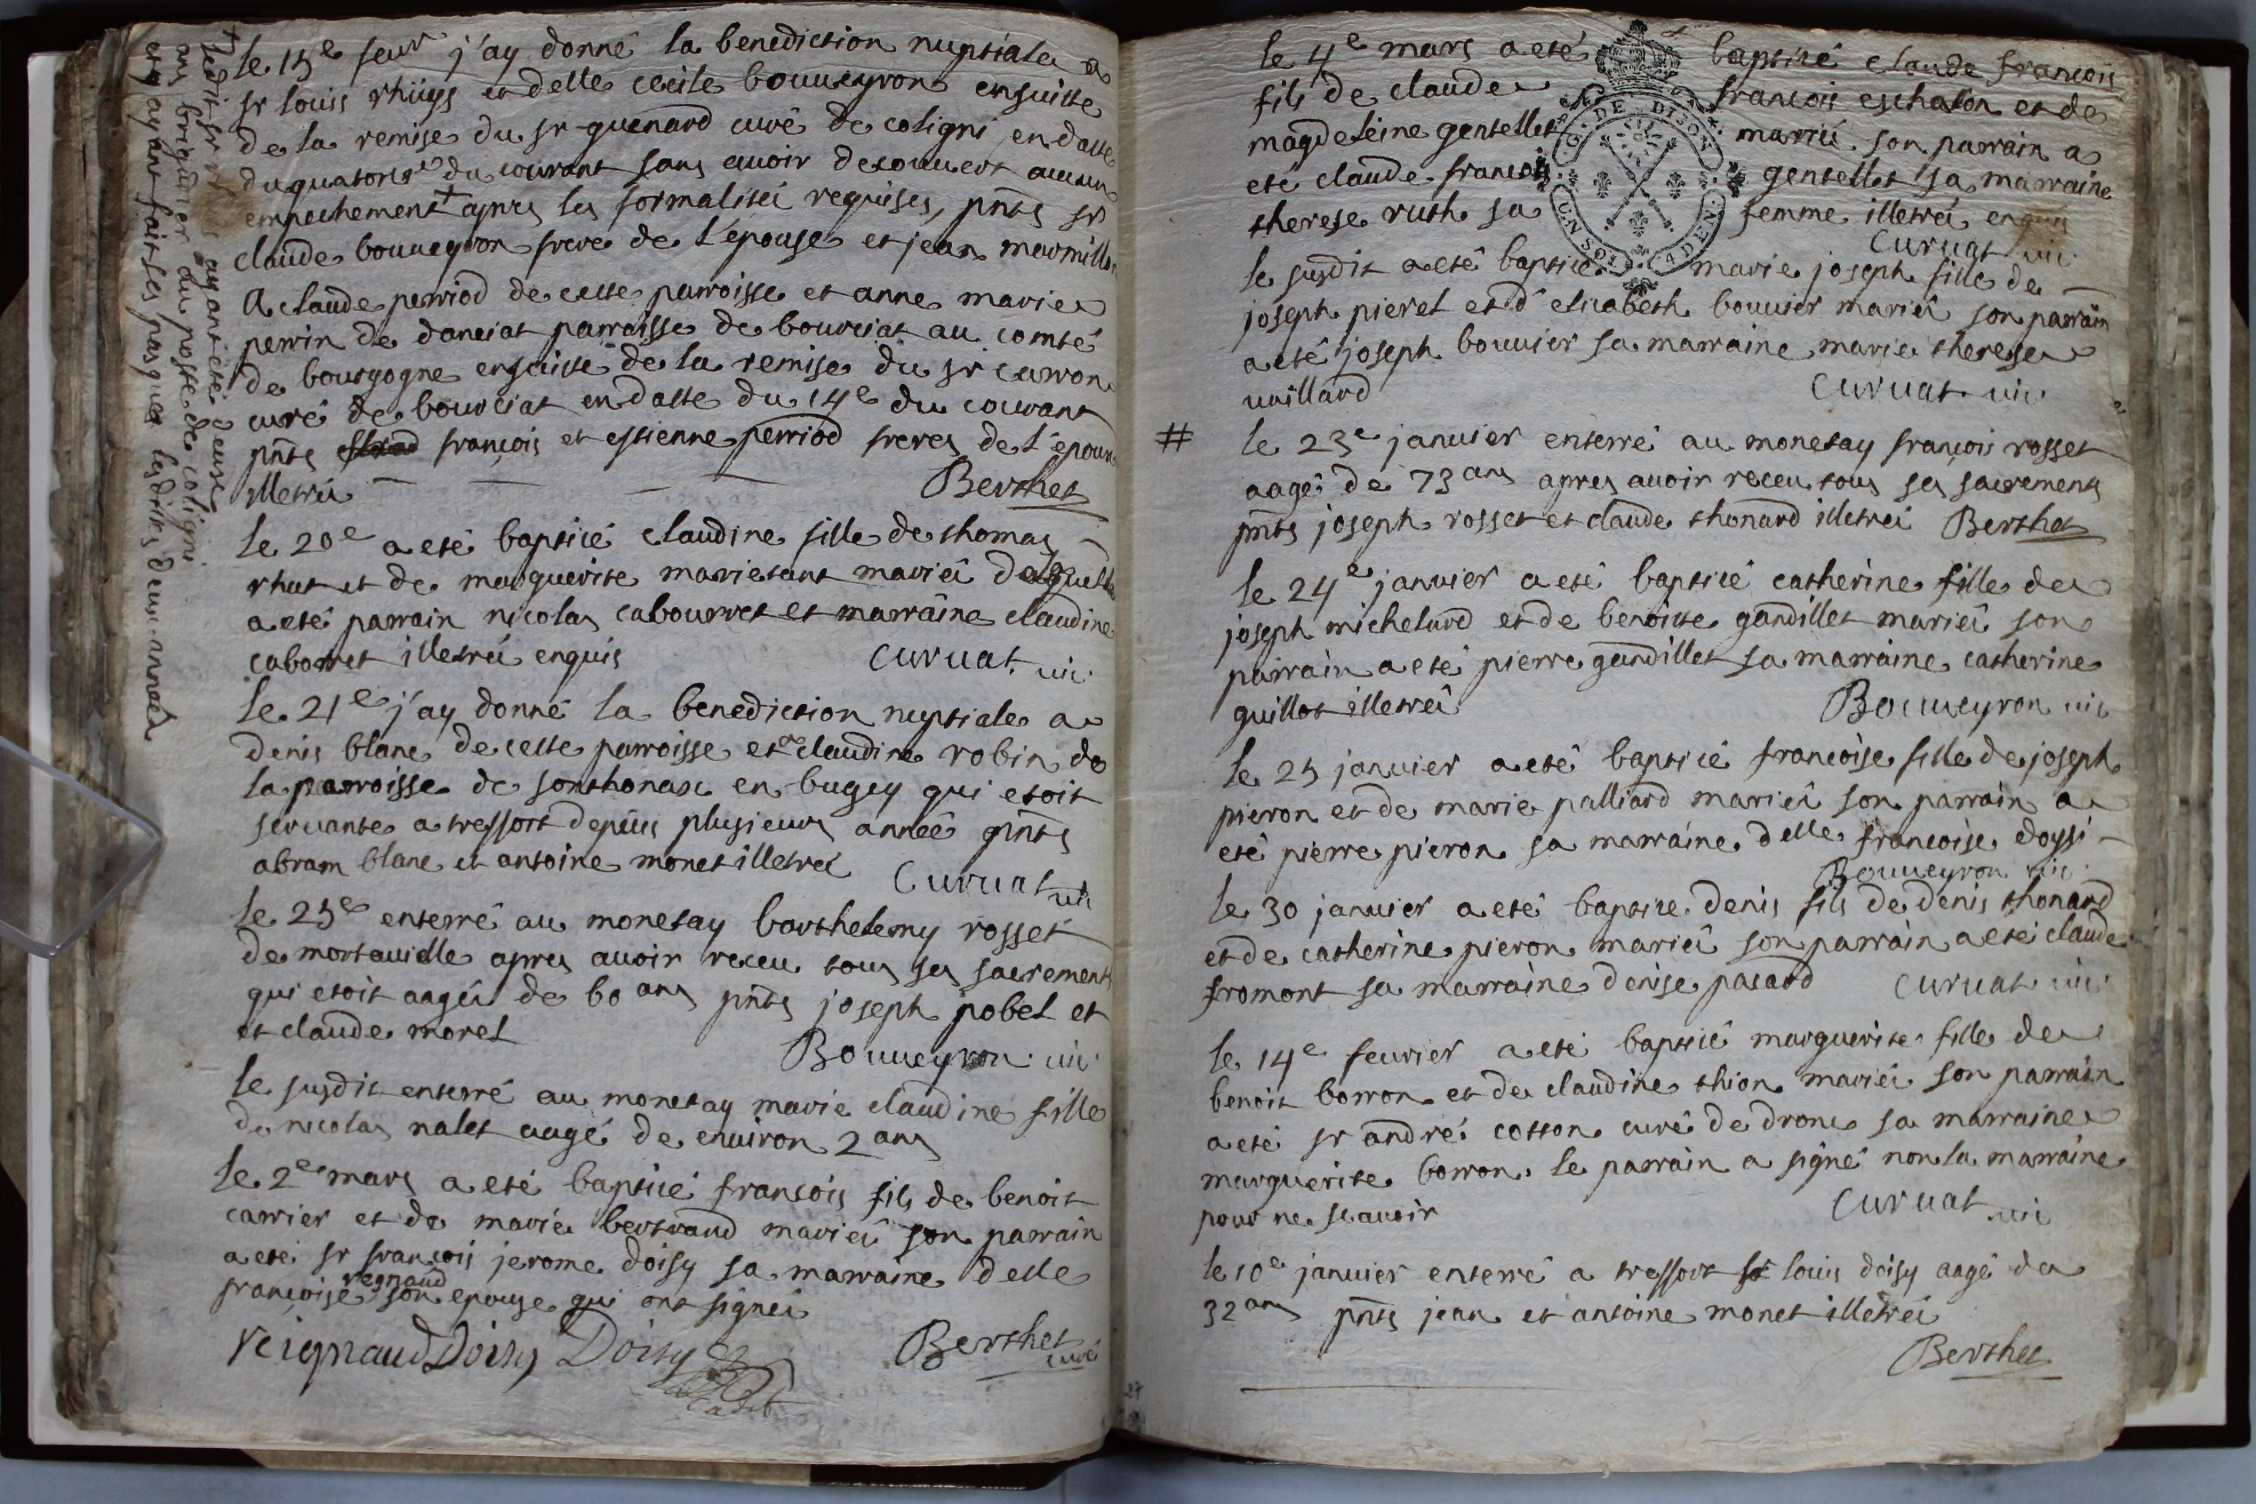 le 15e feur j'ay donné la benediction nuptiale a
sr louis rhüys et delle cecile bouueyron ensuitte
de la remise du sr guenard curé de coligni en datte
du quatorse du courant sans auoir decouuert aucun
empechement + apres les formalités requises, pnts sr
claude bouueyron frere de l'épouse et jean marmillon
A claude perriod de cette parroisse et anne marie
perrin de danciat parroisse de bourciat au comté
de bourgogne ensuitte de la remise du sr carron
curé de bourciat en datte du 14e du courant
pnts françois et estienne perriod freres de l'epoux
illetrés Berthet
le 20e a eté baptisé claudine fille de thomas
rhut et de marguerite marietant mariés de laquelle
a eté parrain nicolas cabourret et marraine claudine
caborret illetrés enquis Curuat vic
le 21e j'ay donné la benediction nuptiale a
denis blanc de cette parroisse et a claudine robin de
la parroisse de sonthonax en bugey qui etoit
seruante a tressort depuis plusieurs année pnts
abram blanc et antoine monet illetrés Curuat vic
le 25e enterré au monetay barthelemy rosset
de mortauielle apres auoir receu tous ses sacrements
qui etoit aagés de 60 ans pnts joseph pobel et
et claude morel Bouueyron vic
le susdit enterré au monetay marie claudine fille
de nicolas nalet aagé de enuiron 2 ans
le 2e mars a eté baptisé francois fils de benoit
carrier et de marie bertrand mariés son parrain
a eté sr françois jerome doisy sa marraine delle
françoise regnaud son epouse qui ont signés
reignaud Doisy Doisy Berthet curé
+ ledit sr ayant eté deux
ans brigadier au poste de coligni
et y ayant fait ses pasques lesdites deux années
le 4e mars a eté baptisé claude françois
fils de claude françois eschalon et de
magdeleine gentellet mariés son parrain a
eté claude françois gentellet sa marraine
therese ruth sa femme illetrés enquis
G. DE DIJON Curuat vic
le susdit a eté baptisé marie joseph fille de
joseph pierel et d'elisabeth bouuier mariés son parrain
a eté joseph bouuier sa marraine marie therese
uuillard Curuat vic
# le 23e januier enterré au monetay françois rosset
aagé de 73 ans apres auoir receu tous ses sacrements
pnts joseph rosset et claude thonard illetrés Berthet
le 24e januier a eté baptisé catherine fille de
joseph michelard et de benoitte gandillet mariés son
parrain a eté pierre gandillet sa marraine catherine
guillot illetrés Bouueyron vic
le 25 januier a eté baptisé francoise fille de joseph
pieron et de marie palliard mariés son parrain a
eté pierre pieron sa marraine delle francoise doysi
Bouueyron vic
le 30 januier a eté baptise denis fils de denis thonard
et de catherine pieron mariés son parrain a eté claude
fromont sa marraine denise pacard Curuat vic
le 14e feurier a eté baptisé marguerite fille de
benoit borron et de claudine thion mariés son parrain
a eté sr andré cotton curé de drom sa marraine
marguerite borron le parrain a signé non la marraine
pour ne scauoir Curuat vic
le 10e januier enterré a tressort sr louis doisy aagé de
32 ans pnts jean et antoine monet illetrés
Berthet